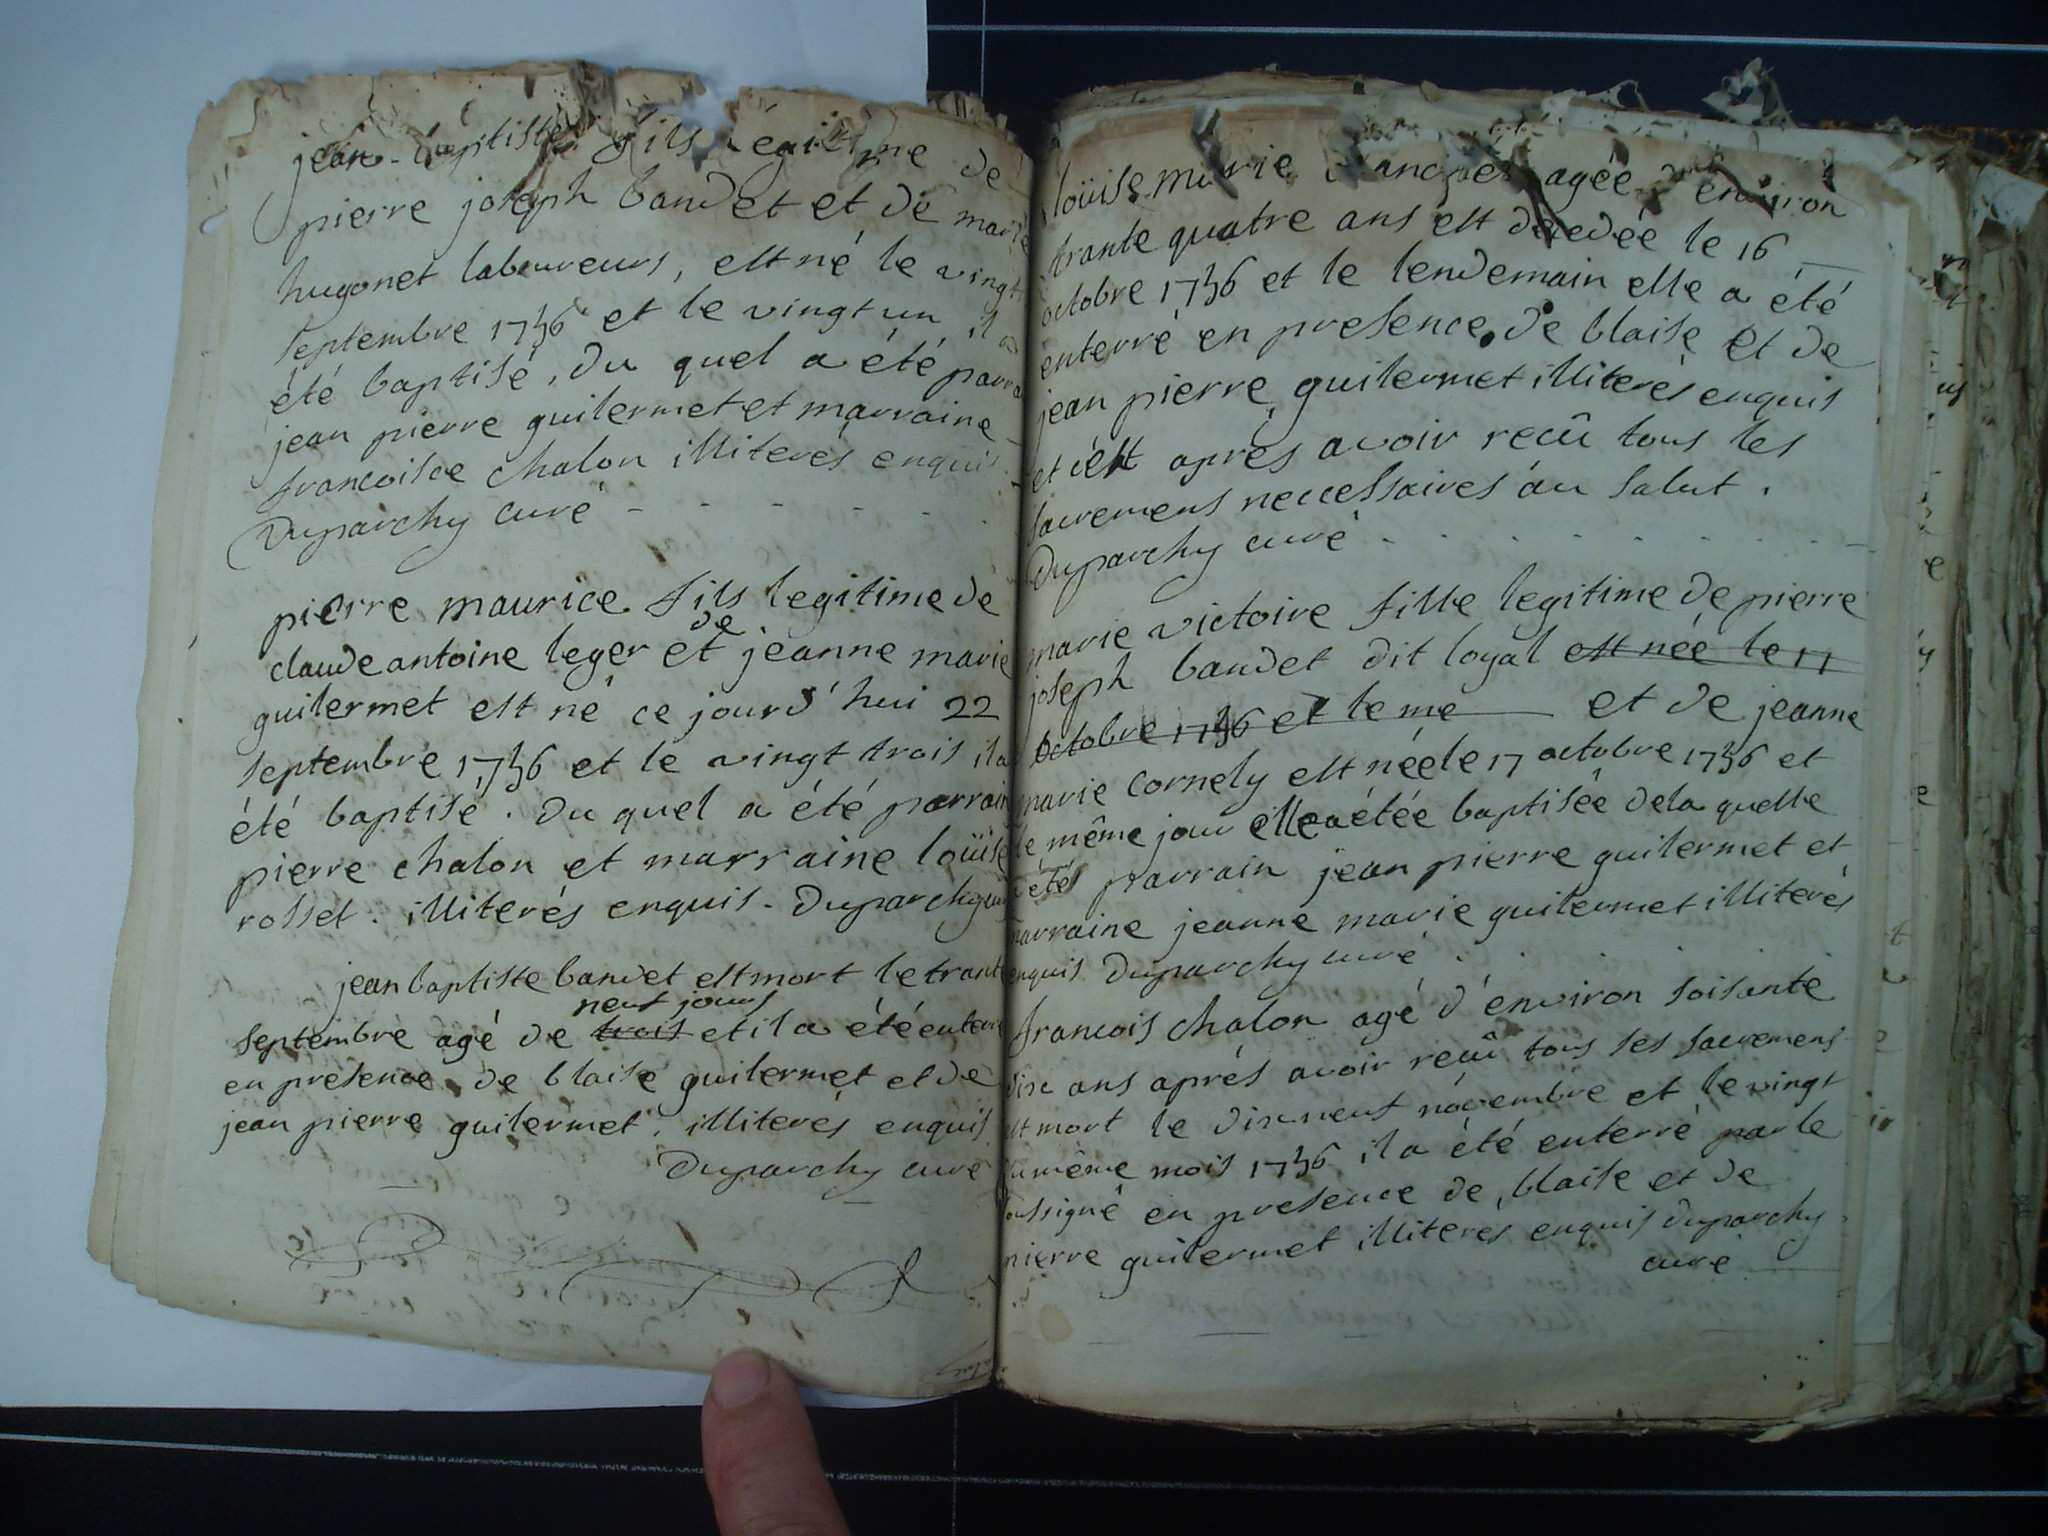 jean-baptiste fils légitime de
pierre joseph baudet et de marie
hugonet laboureurs, est né le vingt
septembre 1756 et le vingt un il a
été baptisé, du quel a été parra
jean pierre guilermet et marraine
francoise chalon illiterés enquis
Duparchy curé - - - - - -
pierre maurice fils legitime de
claude antoine leger et de jeanne marie
guilermet est né ce jourd'hui 22
septembre 1756 et le vingt trois il a
été baptisé. Du quel a été parrain
pierre chalon et marraine loüise
rosset. illiterés enquis. Duparchy curé
jean baptiste baudet est mort le trante
septembre agé de trois neuf jours et il a été enterré
en presence de blaise guilermet et de
jean pierre guilermet. illiterés enquis
Duparchy curé
loüise marie agée d'environ
trante quatre ans est decedée le 16
octobre 1756 et le lendemain elle a été
enterré en presence de blaise et de
jean pierre guilermet illiterés enquis
et c'est aprés avoir recû tous les
sacremens neccessaires au salut.
Duparchy curé - - - - - - - -
marie victoire fille legitime de pierre
joseph baudet dit loyal est née le 17
octobre 1756 et le me et de jeanne
marie cornely est née le 17 octobre 1756 et
le même jour elle a étée baptisée de la quelle
a étés parrain jean pierre guilermet et
marraine jeanne marie guilermet illiterés
enquis Duparchy curé . . . .
francois chalon agé d'environ soisante
disc ans aprés avoir recû tous ses sacremens
est mort le disc neuf novembre et le vingt
du même mois 1756 il a été enterré par le
soussigné en presence de blaise et de
pierre guilermet illiterés enquis duparchy
curé